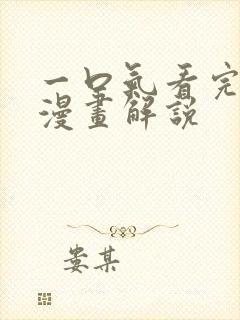 一口氣看完
漫畫解説
婁某